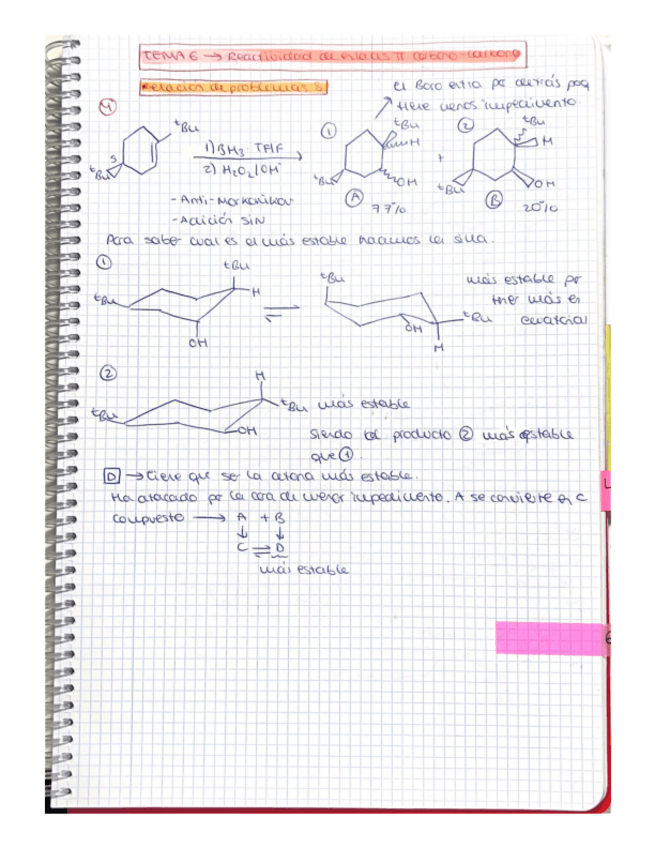 TEMA 6 → Reactividad de enlaces π carbono-carbono
Relación de problemas 3
El Boro entra por detrás porq
tiene menos impedimento
4
tBu
S
tBu
1) BH3·THF
2) H2O2/OH-
- Anti-Markonikov
- Adición SIN
1
tBu
H
tBu
OH
A
77%
+
2
tBu
H
tBu
OH
B
20%
Para saber cual es el más estable hacemos la silla.
1
tBu
tBu
H
OH
tBu
OH
tBu
H
más estable por
tener más en
ecuatorial
2
H
tBu
tBu
OH
más estable
siendo el producto 2 más estable
que 1.
D → tiene que ser la cetona más estable.
Ha atacado por la cara de menor impedimento. A se convierte en C
compuesto → A + B
↓ ↓
C ⇌ D
más estable
L
6